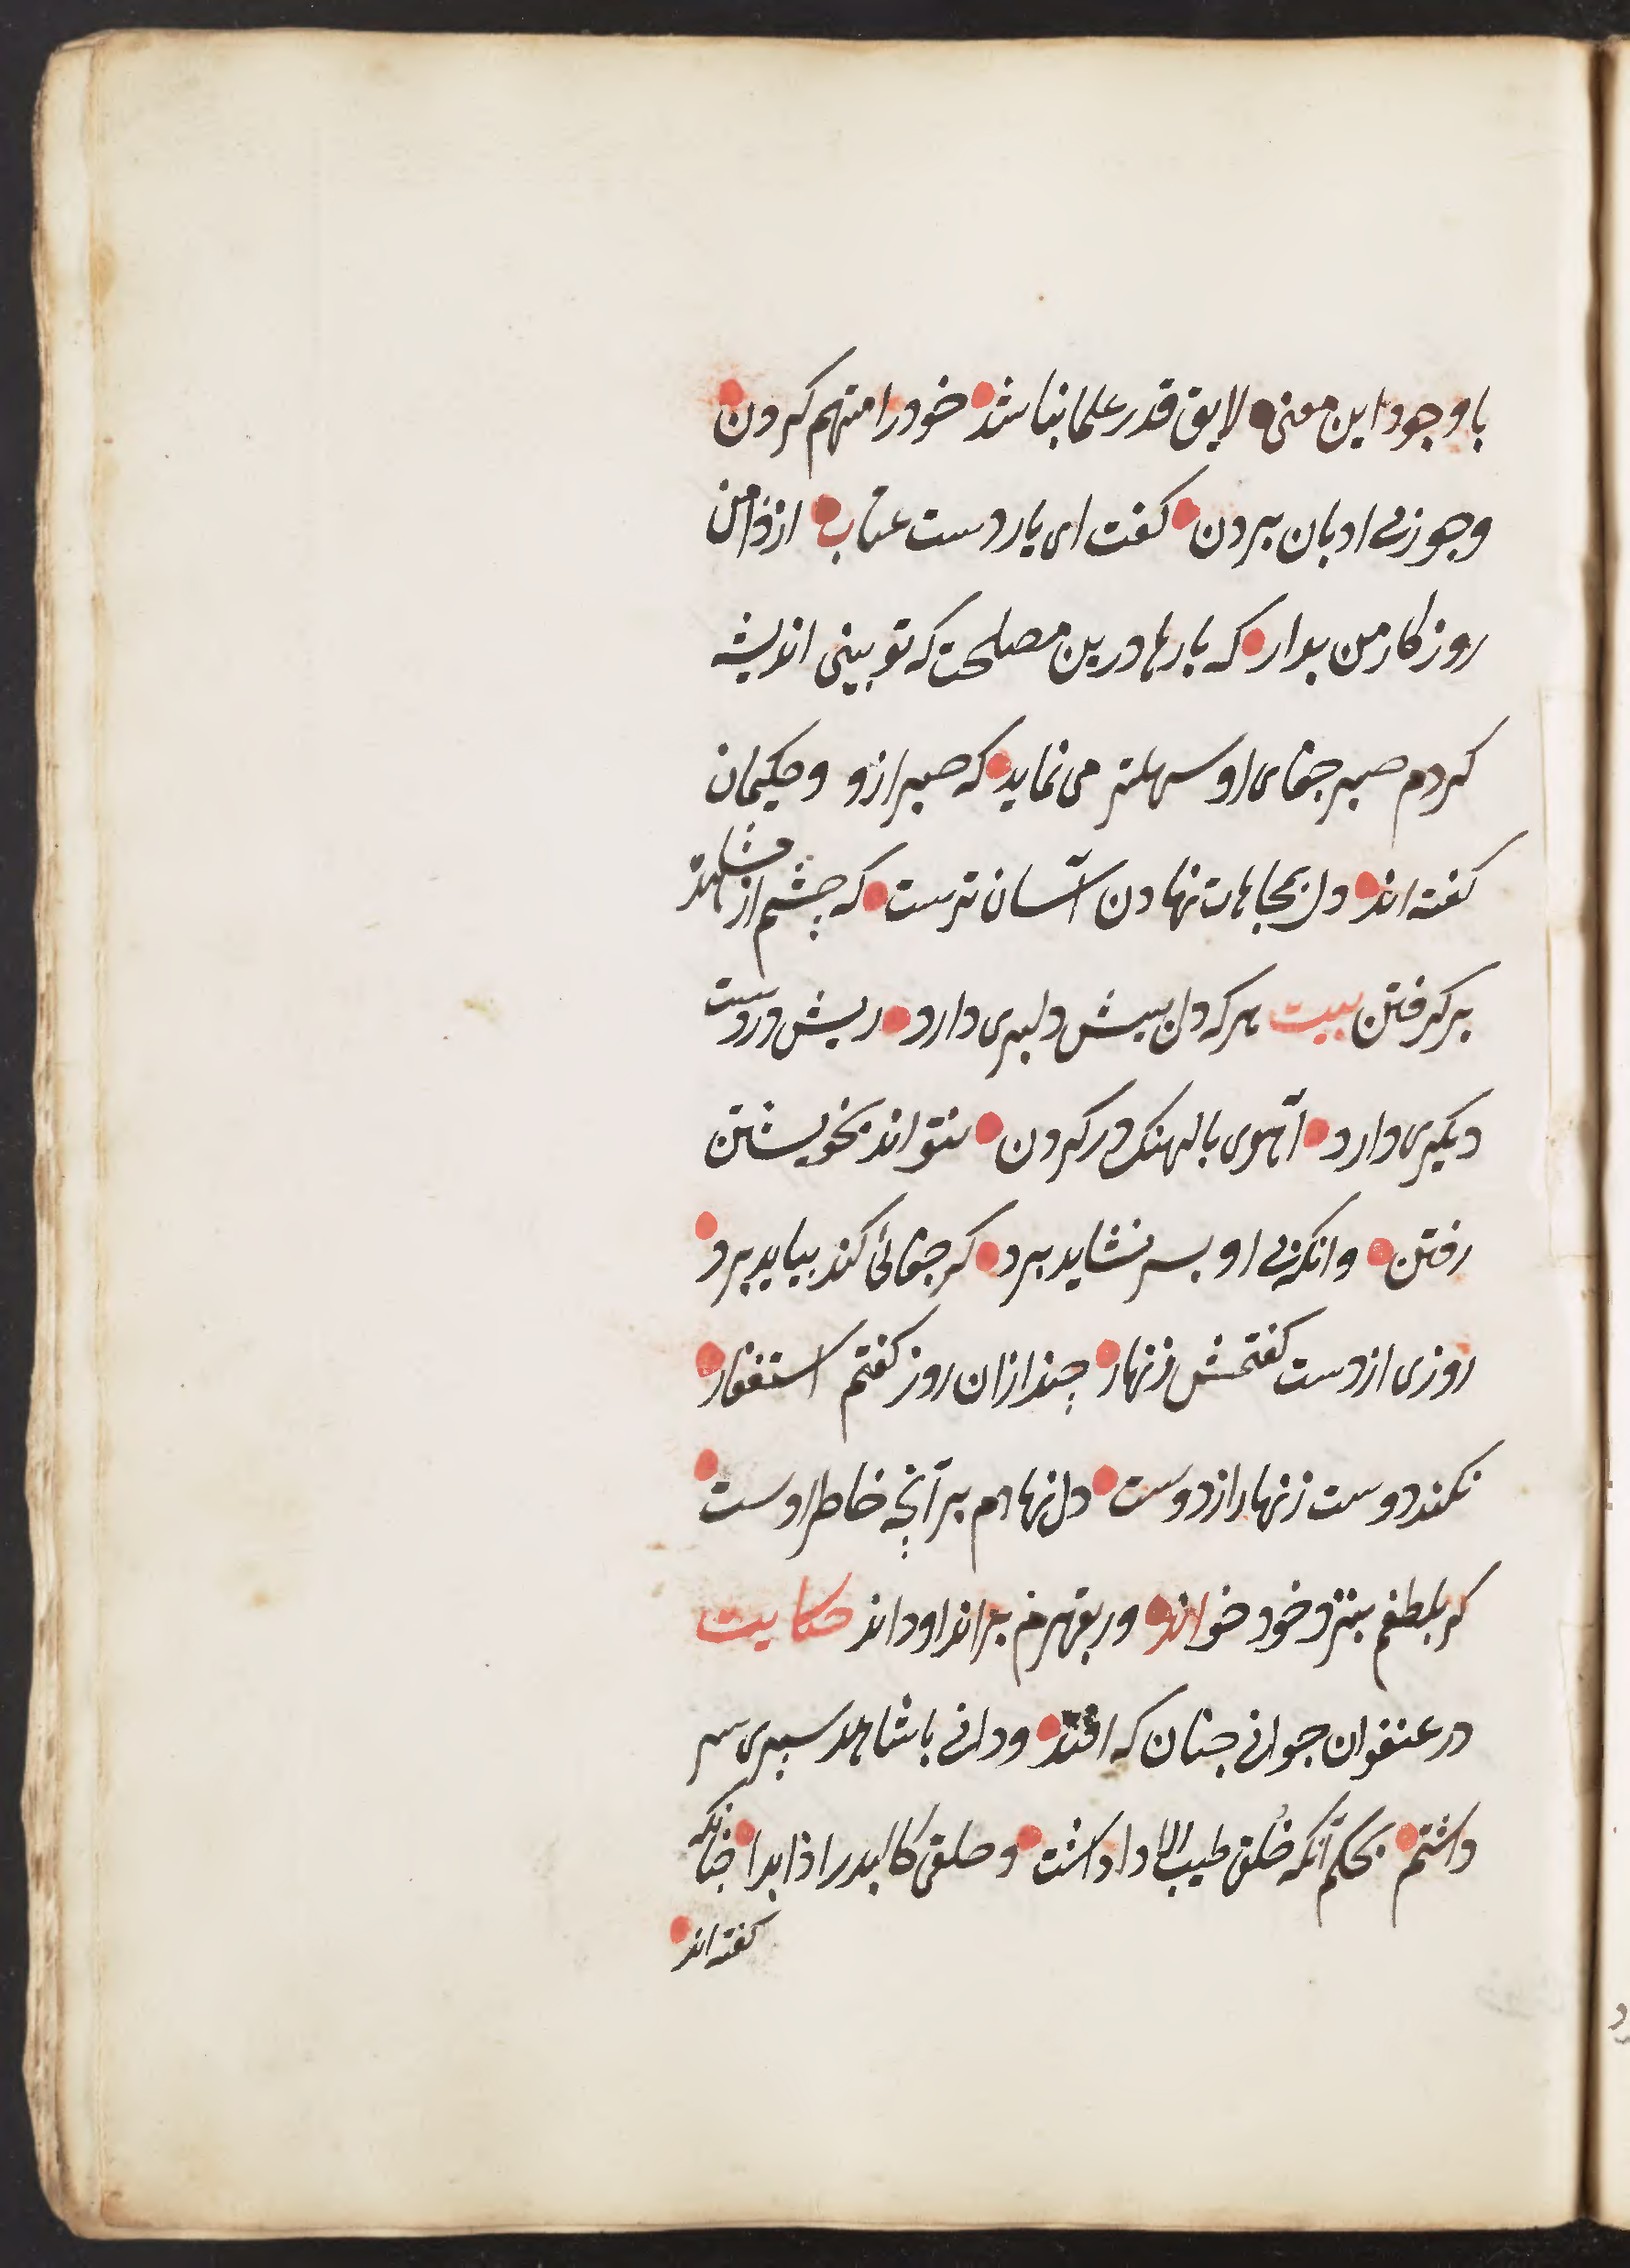 با وجود این معنی لایق قدر علما نباشد خود را متهم کردن
و جور بی ادبان بردن کفت ای یار دست عتاب از دامن
روزکار من بدار که بارها درین مصلحت که تو بینی اندیشه
کردم صبر جفای او سهلتر می نماید که صبر ازو و حکیمان
کفته اند دل بمجاهدت نهادن آسان ترست که چشم از مشاهده
بر کرفتن بیت هر که دل پیش دلبری دارد ریش در دست
دیکری دارد آهوی بالهنک در کردن نتواند بخویشتن
رفتن وانکه بی او بسر نشاید برد کر جفائی کند بباید برد
روزی از دست کفتمش زنهار چند ازان روز کفتم استغفار
نکند دوست زنهار از دوست دل نهادم بر آنچه خاطر اوست
کر بلطفم بنزد خود خواند ور بقهرم براند او داند حکایت
در عنفوان جوانی چنان که افتد و دانی با شاهد پسری سر
داشتم بحکم آنکه خلق طیب الادا داشت و خلقی کالبدر اذا بدا چنانکه
کفته اند